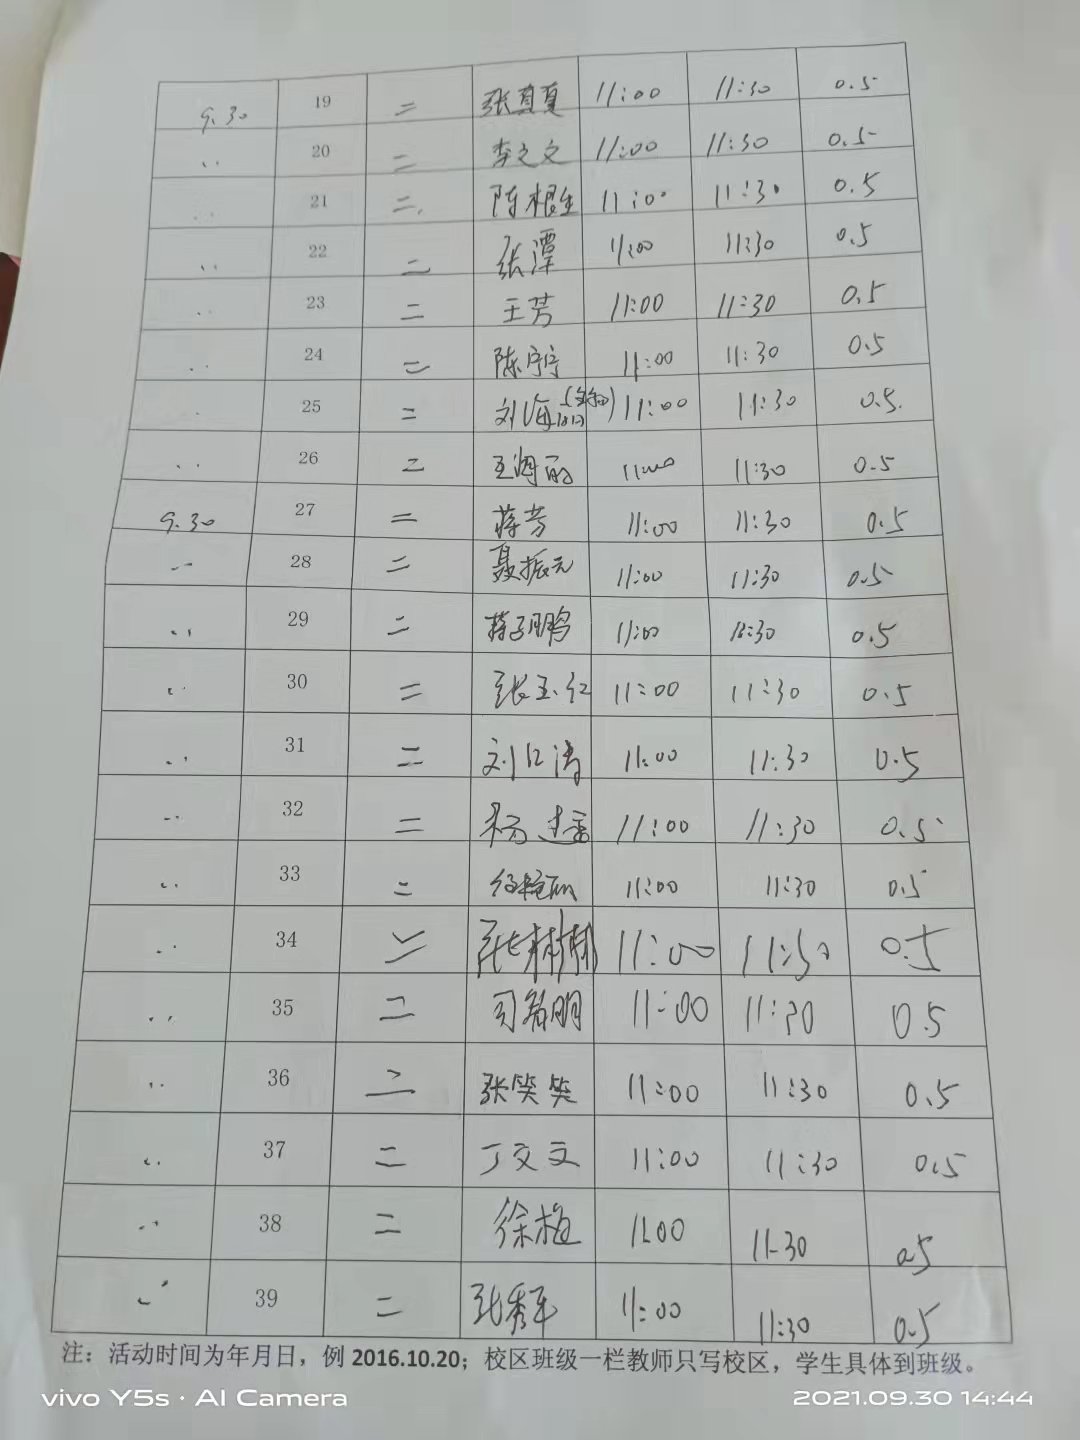 9.30 19 二 张真真 11:00 11:30 0.5
20 二 李文文 11:00 11:30 0.5
21 二 陈根生 11:00 11:30 0.5
22 二 张潭 11:00 11:30 0.5
23 二 王芳 11:00 11:30 0.5
24 二 陈宁宁 11:00 11:30 0.5
25 二 刘海 11:00 11:30 0.5
26 二 王海丽 11:00 11:30 0.5
9.30 27 二 蒋芳 11:00 11:30 0.5
28 二 聂振元 11:00 11:30 0.5
29 二 蒋子鹏 11:00 11:30 0.5
30 二 张玉红 11:00 11:30 0.5
31 二 刘 涛 11:00 11:30 0.5
32 二 杨 11:00 11:30 0.5
33 二 11:00 11:30 0.5
34 二 张林林 11:00 11:30 0.5
35 二 司 明 11:00 11:30 0.5
36 二 张笑笑 11:00 11:30 0.5
37 二 丁文文 11:00 11:30 0.5
38 二 徐梅 11:00 11-30 0.5
39 二 张秀军 11:00 11:30 0.5
注：活动时间为年月日，例 2016.10.20；校区班级一栏教师只写校区，学生具体到班级。
vivo Y5s · AI Camera
2021.09.30 14:44